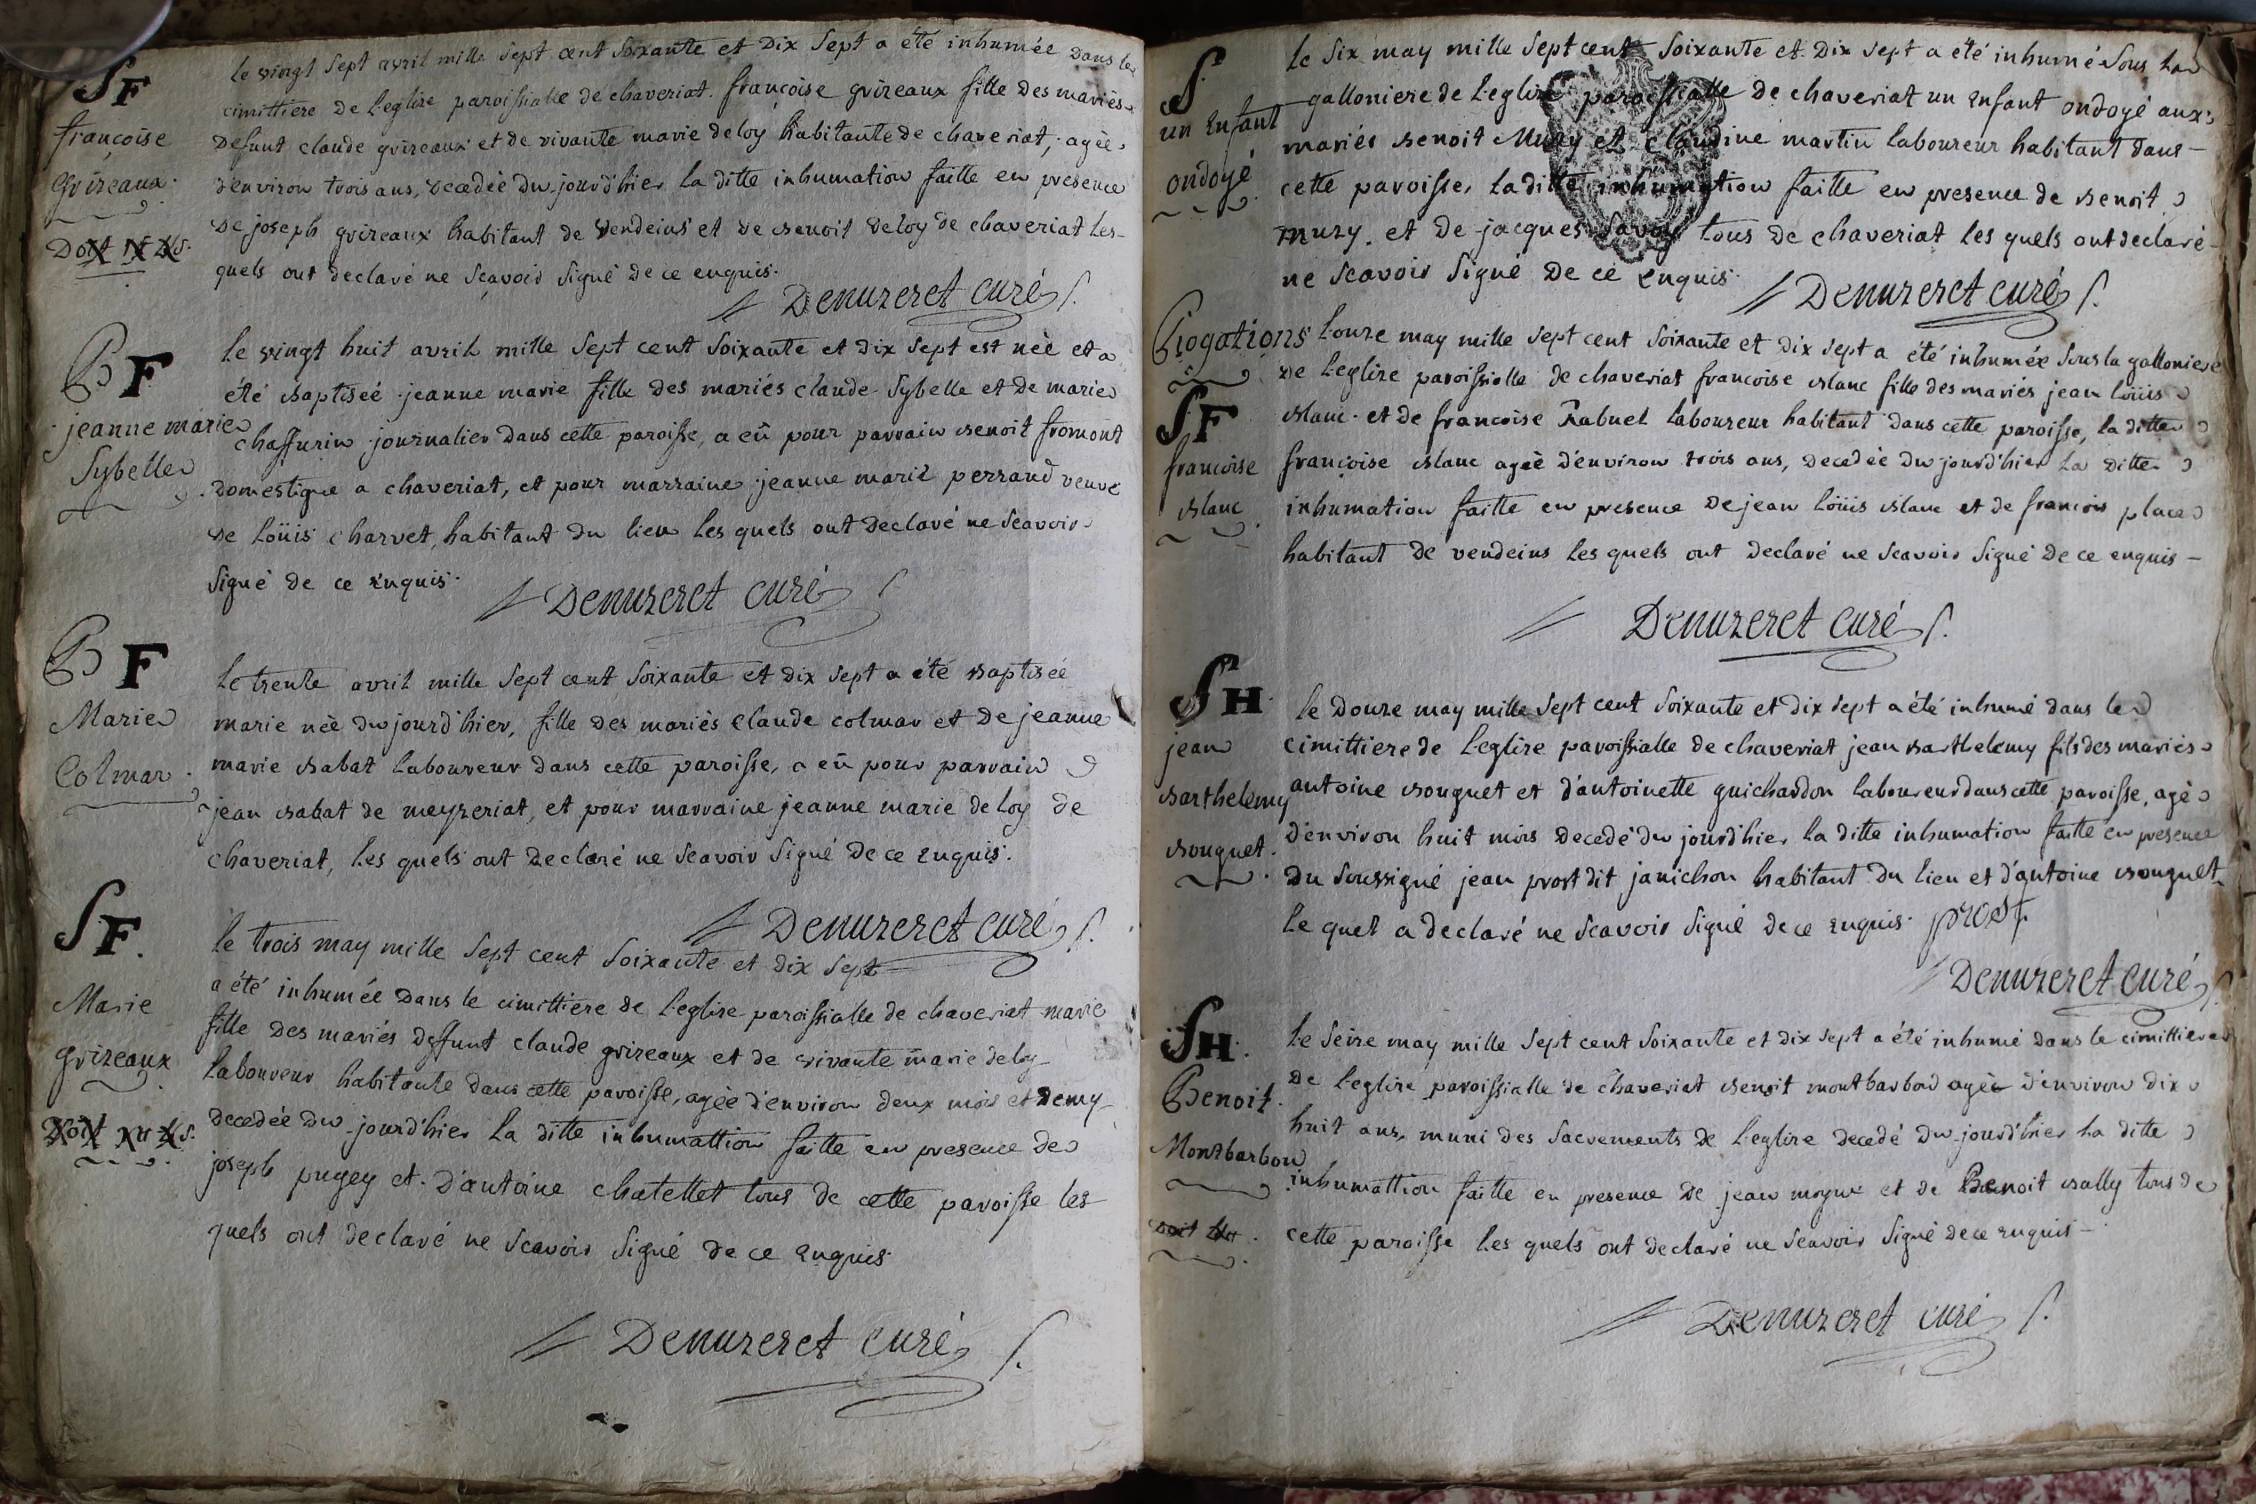 SF
françoise
grizeaux
le vingt sept avril mille sept cent soixante et dix sept a été inhumée dans le
cimittiere de leglise paroissialle de chaveriat françoise grizeaux fille des mariés
defunt claude grizeaux et de vivante marie deloy habitante de chaveriat, agée
d'environ trois ans, decedée du jourd'hier la ditte inhumation faitte en presence
de joseph grizeaux habitant de vendeins et de benoit deloy de chaveriat les
quels ont declaré ne scavoir signé de ce enquis.
Denuzeret curé
BF
jeanne marie
Sybelle
le vingt huit avril mille sept cent soixante et dix sept est née et a
été baptisée jeanne marie fille des mariés claude Sybelle et de marie
chaffurin journalier dans cette paroisse, a eû pour parrain benoit fromont
domestique a chaveriat, et pour marraine jeanne marie perraud veuve
de loüis charvet, habitant du lieu les quels ont declaré ne scavoir
signé de ce enquis.
Denuzeret curé
BF
Marie
Colmar
le trente avril mille sept cent soixante et dix sept a été baptisée
marie née du jourd'hier, fille des mariés claude colmar et de jeanne
marie babat laboureur dans cette paroisse, a eû pour parrain
jean babat de meyzeriat, et pour marraine jeanne marie deloy de
chaveriat, les quels ont declaré ne scavoir signé de ce enquis.
Denuzeret curé
SF.
Marie
grizeaux
le trois may mille sept cent soixante et dix sept
a été inhumée dans le cimittiere de leglise paroissialle de chaveriat marie
fille des mariés deffunt claude grizeaux et de vivante marie deloy
laboureur habitante dans cette paroisse, agée d'environ deux mois et demy
decedée du jourd'hier la ditte inhumattion faitte en presence de
joseph pugey et d'antoine chatellet tous de cette paroisse les
quels ont declaré ne scavoir signé de ce enquis
Denuzeret curé
S
un enfant
ondoyé
le six may mille sept cent soixante et dix sept a été inhumé sous la
galloniere de leglise paroissialle de chaveriat un enfant ondoyé aux
mariés benoit Muzy et claudine martin laboureur habitant dans
cette paroisse, la ditte inhumation faitte en presence de benoit
muzy, et de jacques savoy tous de chaveriat les quels ont declaré
ne scavoir signé de ce enquis.
Denuzeret curé
Rogations
SF
francoise
blanc
l'onze may mille sept cent soixante et dix sept a été inhumée sous la galloniere
de leglise paroissialle de chaveriat francoise blanc fille des mariés jean loüis
blanc et de francoise Rabuel laboureur habitant dans cette paroisse, la ditte
françoise blanc agée d'environ trois ans, decedée du jourd'hier la ditte
inhumation faitte en presence de jean loüis blanc et de francois place
habitant de vendeins les quels ont declaré ne scavoir signé de ce enquis
Denuzeret curé
SH
jean
barthelemy
bouquet.
le douze may mille sept cent soixante et dix sept a été inhumé dans le
cimittiere de leglise paroissialle de chaveriat jean barthelemy fils des mariés
antoine bouquet et d'antoinette guichardon laboureur dans cette paroisse, agé
d'environ huit mois decedé du jourd'hier la ditte inhumation faitte en presence
du soussigné jean prost dit janichon habitant du lieu et d'antoine bouquet
le quel a declaré ne scavoir signé de ce enquis. prost
Denuzeret curé
SH.
Benoit
Montbarbon
le seize may mille sept cent soixante et dix sept a été inhumé dans le cimittiere
de leglise paroissialle de chaveriat benoit montbarbon agée d'environ dix
huit ans, muni des sacrements de leglise decedé du jourd'hier la ditte
inhumattion faitte en presence de jean moyne et de Benoit bally tous de
cette paroisse les quels ont declaré ne scavoir signé de ce enquis
Denuzeret curé